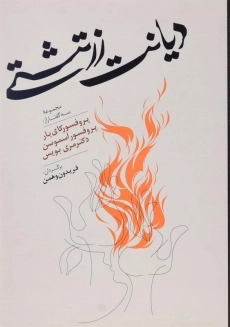 دیانت زرتشتی
مجموعه
سه گفتار از
پروفسور کای بار
پروفسور آسموسن
دکتر مری بویس
برگردان:
فریدون وهمن